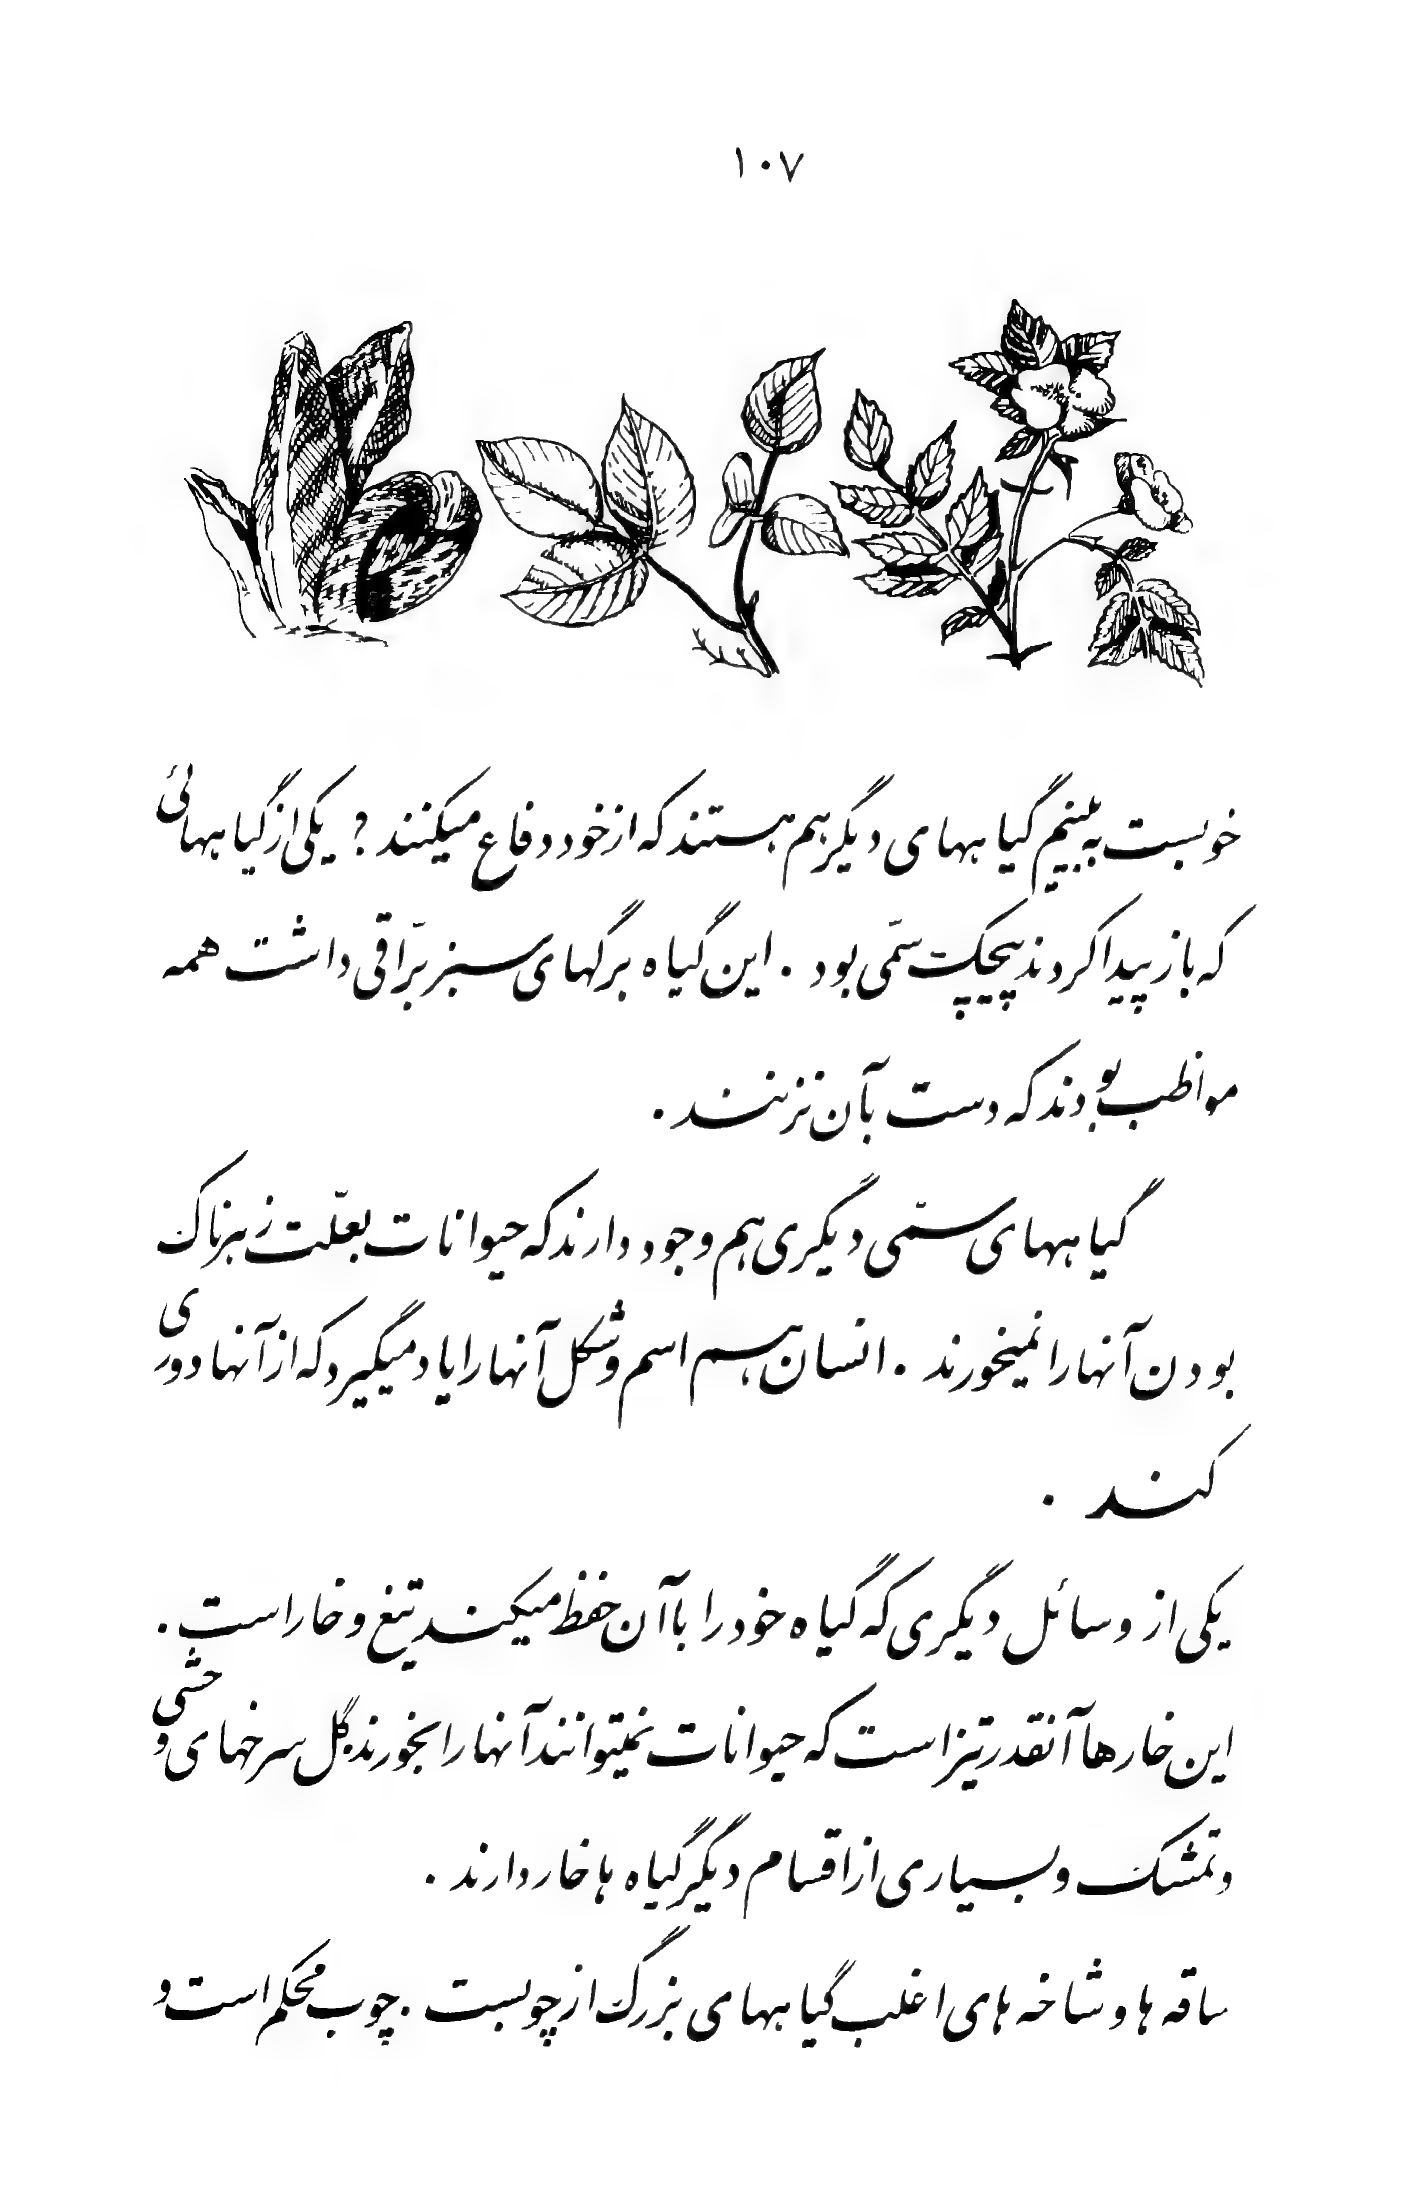 ۱۰۷
خوبست به بینیم گیاههای دیگر هم هستند که از خود دفاع میکنند ؟ یکی از گیاههائی
که باز پیدا کردند پیچک سمّی بود . این گیاه برگهای سبز برّاقی داشت همه
مواظب بودند که دست بآن نزنند .
گیاههای سمّی دیگری هم وجود دارند که حیوانات بعلّت زهرناک
بودن آنها را نمیخورند . انسان هم اسم و شکل آنها را یاد میگیرد که از آنها دوری
کند .
یکی از وسائل دیگری که گیاه خود را با آن حفظ میکند تیغ و خار است .
این خارها آنقدر تیز است که حیوانات نمیتوانند آنها را بخورند. گل سرخهای وحشی
و تمشک و بسیاری از اقسام دیگر گیاه ها خار دارند .
ساقه ها و شاخه های اغلب گیاههای بزرگ از چوبست . چوب محکم است و